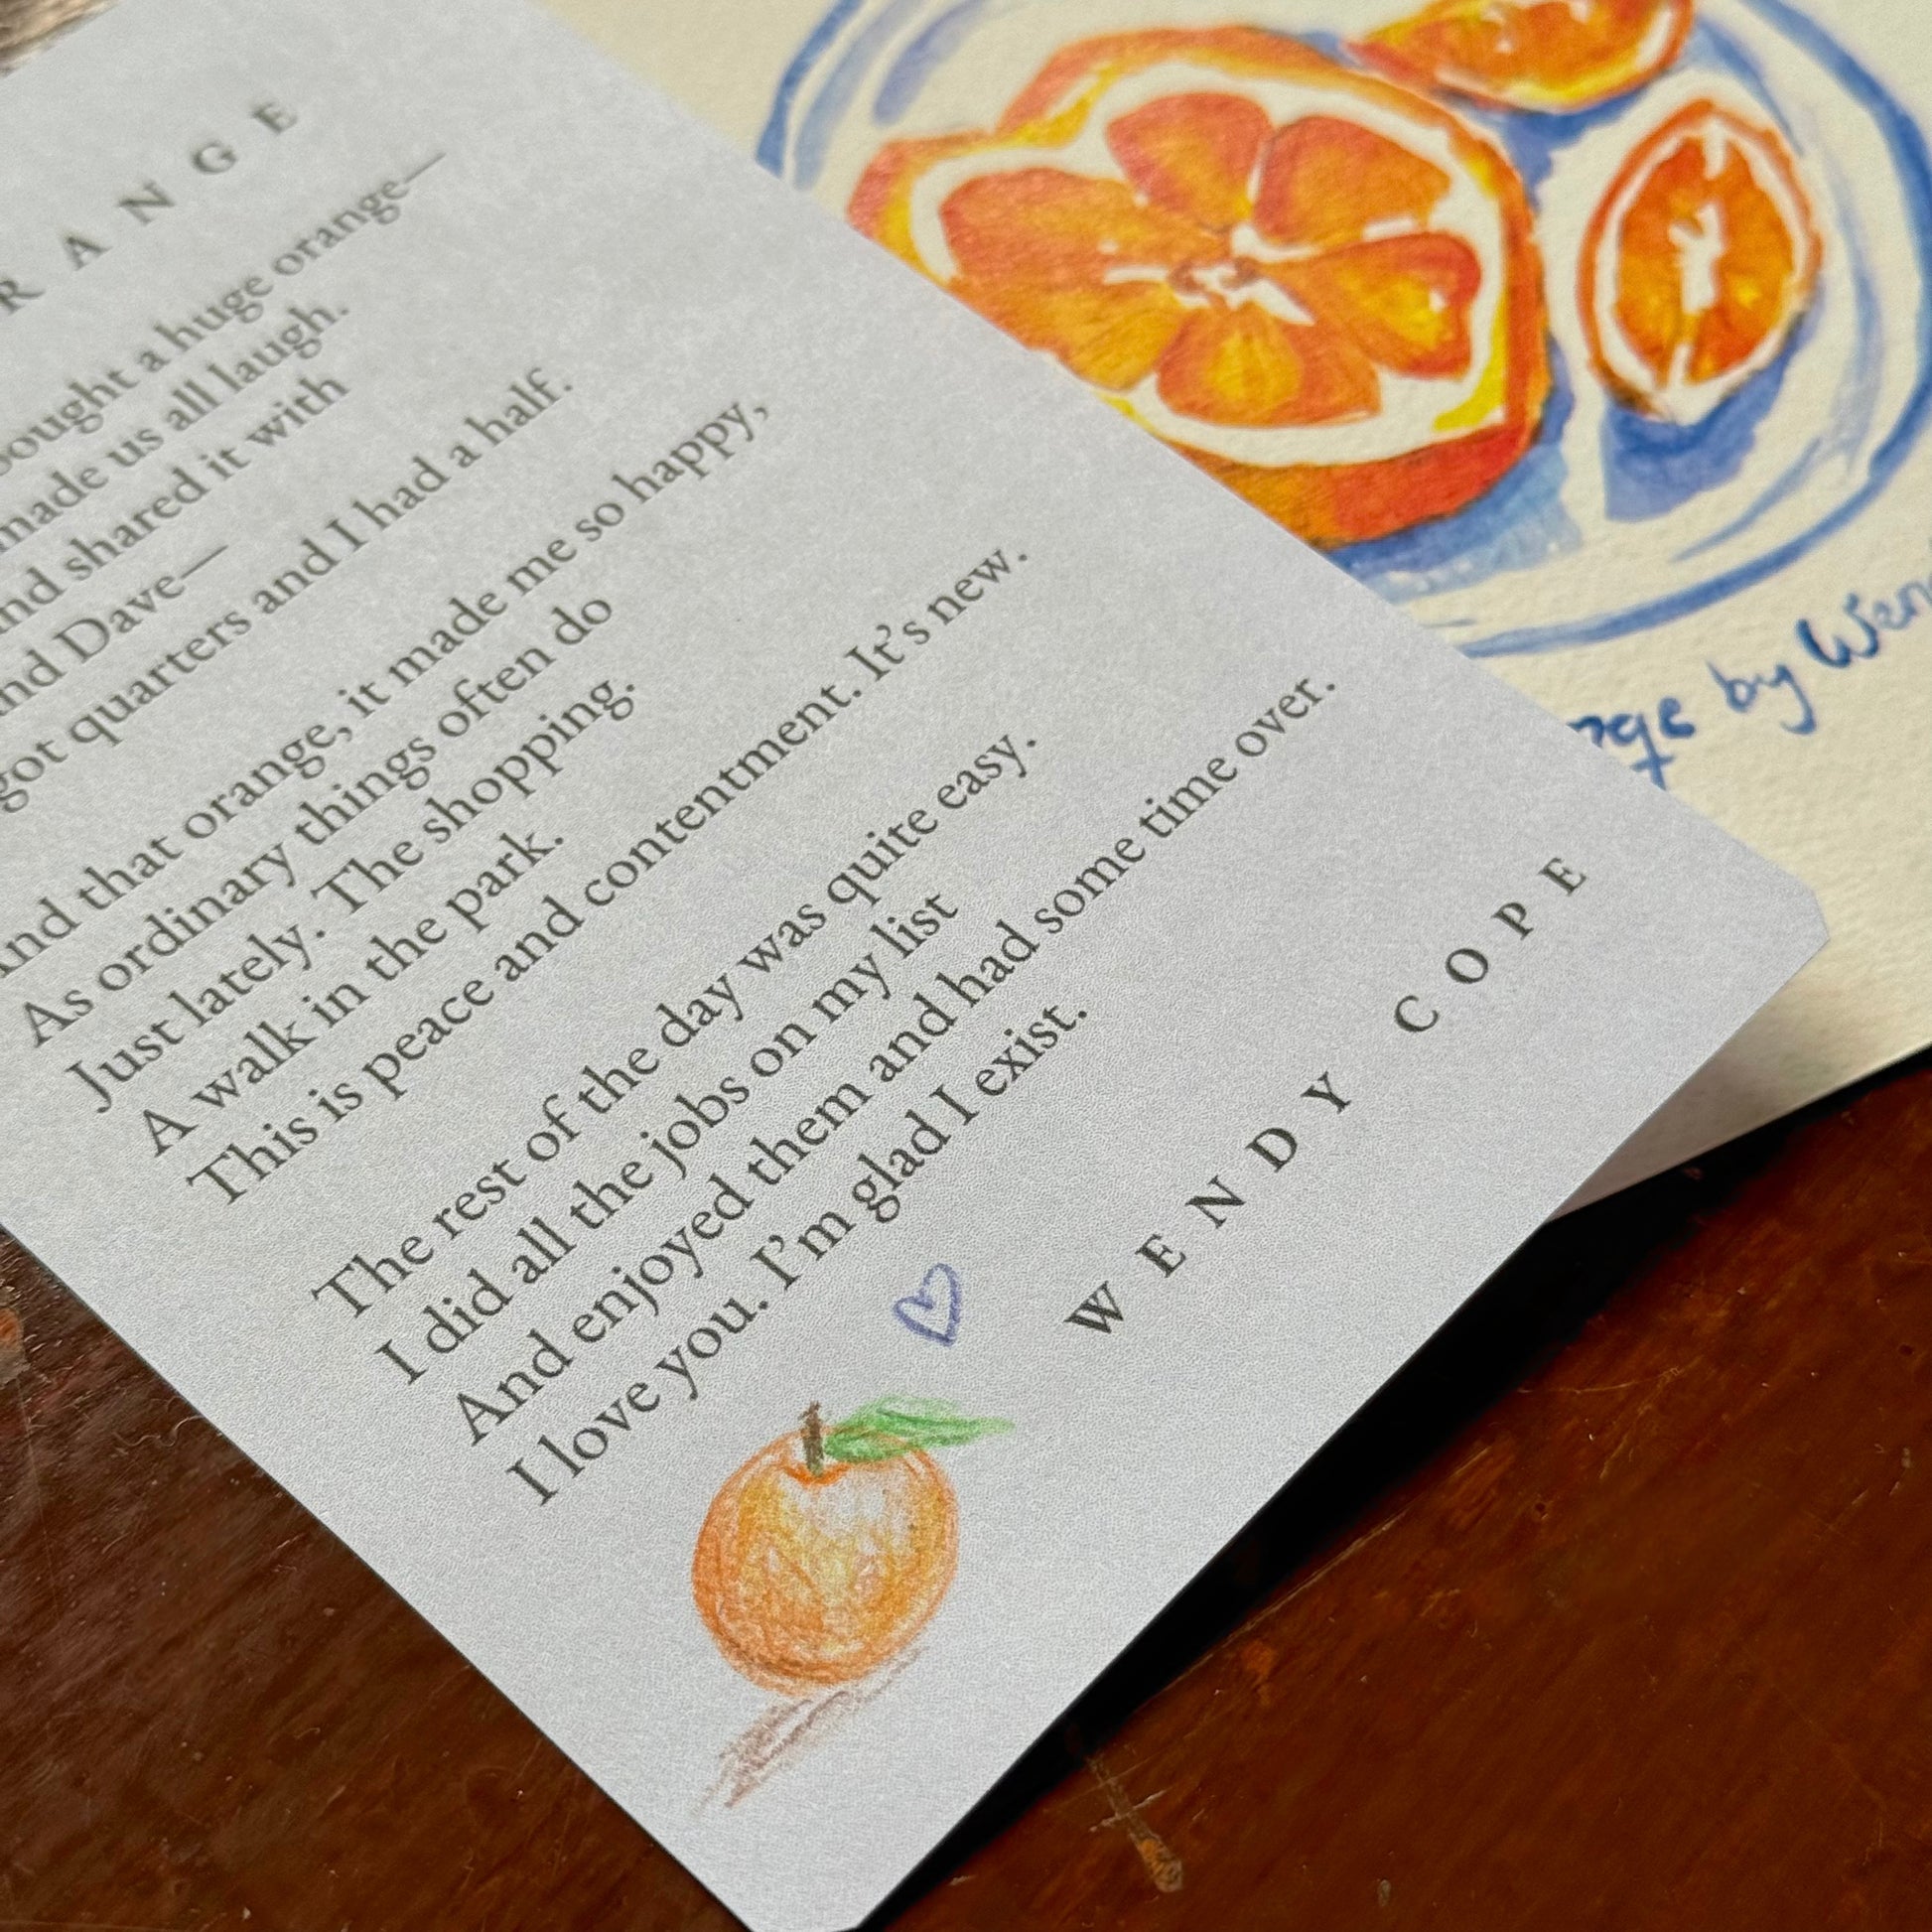 RANGE
bought a huge orange—
made us all laugh.
and shared it with
and Dave—
got quarters and I had a half.
And that orange, it made me so happy,
As ordinary things often do
Just lately. The shopping.
A walk in the park.
This is peace and contentment. It's new.
The rest of the day was quite easy.
I did all the jobs on my list
And enjoyed them and had some time over.
I love you. I'm glad I exist.
WENDY COPE
by